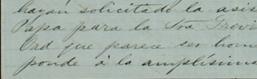 hayan solicitado la asis
Papa para la Sra Provi
Ord que parece ser hom
ponde á la amplísima